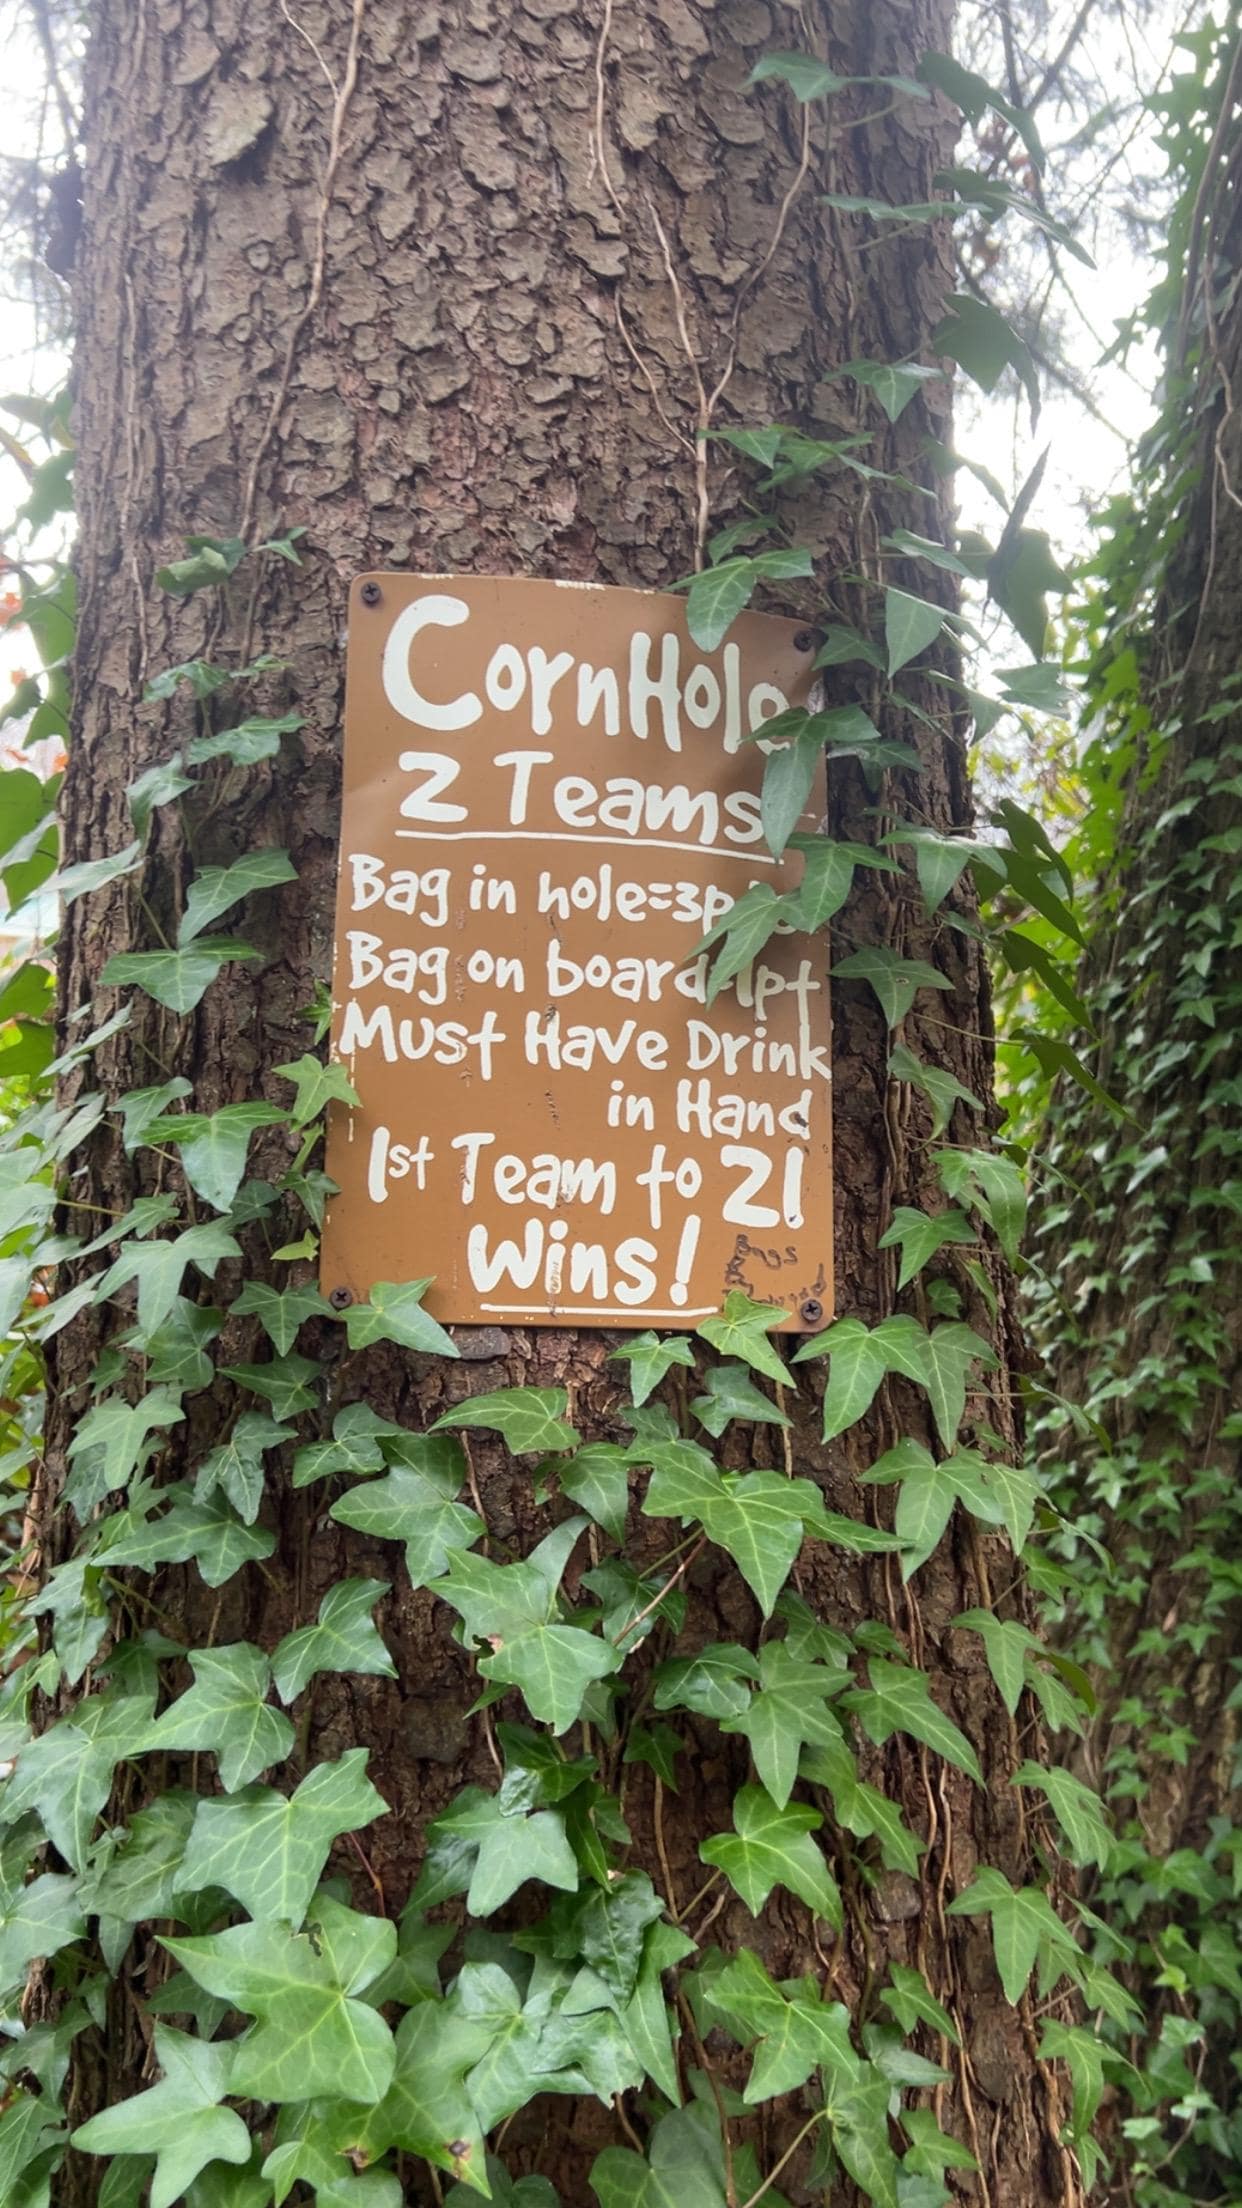 CornHole
2 Teams
Bag in hole=3pts
Bag on board=1pt
Must Have Drink
in Hand
1st Team to 21
Wins!
Bags